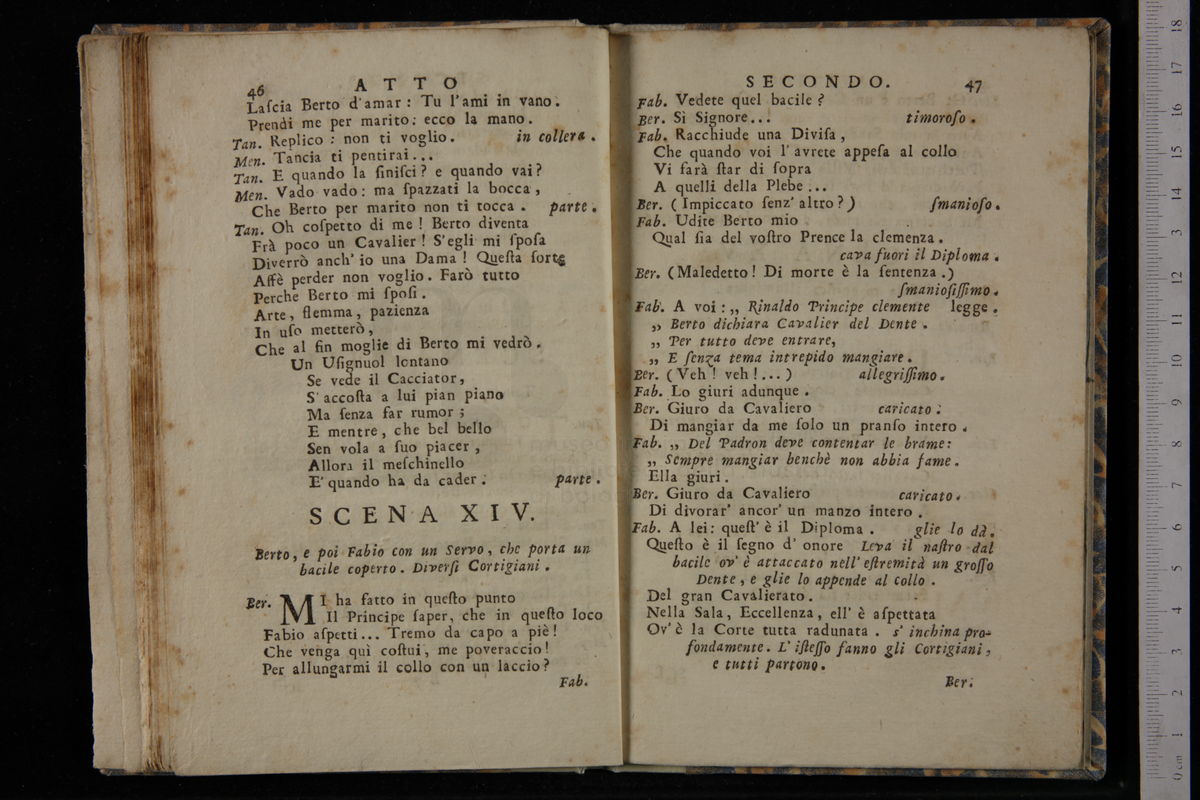 46
ATTO
Laſcia Berto d'amar: Tu l'ami in vano.
Prendi me per marito: ecco la mano.
Tan. Replico: non ti voglio. in collera.
Men. Tancia ti pentirai...
Tan. E quando la finiſci? e quando vai?
Men. Vado vado: ma ſpazzati la bocca,
Che Berto per marito non ti tocca. parte.
Tan. Oh coſpetto di me! Berto diventa
Frà poco un Cavalier! S'egli mi ſpoſa
Diverrò anch' io una Dama! Queſta ſorte
Affè perder non voglio. Farò tutto
Perche Berto mi ſpoſi.
Arte, flemma, pazienza
In uſo metterò,
Che al fin moglie di Berto mi vedrò.
Un Uſignuol lontano
Se vede il Cacciator,
S'accoſta a lui pian piano
Ma ſenza far rumor;
E mentre, che bel bello
Sen vola a ſuo piacer,
Allora il meſchinello
E' quando ha da cader. parte.
SCENA XIV.
Berto, e poi Fabio con un Servo, che porta un
bacile coperto. Diverſi Cortigiani.
Ber. MI ha fatto in queſto punto
Il Principe ſaper, che in queſto loco
Fabio aſpetti... Tremo da capo a piè!
Che venga quì coſtui, me poveraccio!
Per allungarmi il collo con un laccio?
Fab.
SECONDO.
47
Fab. Vedete quel bacile?
Ber. Si Signore... timoroſo.
Fab. Racchiude una Diviſa,
Che quando voi l'avrete appeſa al collo
Vi farà ſtar di ſopra
A quelli della Plebe...
Ber. (Impiccato ſenz' altro?) ſmanioſo.
Fab. Udite Berto mio
Qual ſia del voſtro Prence la clemenza.
cava fuori il Diploma.
Ber. (Maledetto! Di morte è la ſentenza.)
ſmanioſiſſimo.
Fab. A voi: „ Rinaldo Principe clemente legge.
„ Berto dichiara Cavalier del Dente.
„ Per tutto deve entrare,
„ E ſenza tema intrepido mangiare.
Ber. (Veh! veh!...) allegriſſimo.
Fab. Lo giuri adunque.
Ber. Giuro da Cavaliero caricato.
Di mangiar da me ſolo un pranſo intero.
Fab. „ Del Padron deve contentar le brame:
„ Sempre mangiar benchè non abbia fame.
Ella giuri.
Ber. Giuro da Cavaliero caricato.
Di divorar' ancor' un manzo intero.
Fab. A lei: queſt' è il Diploma. glie lo dà.
Queſto è il ſegno d' onore Leva il naſtro dal
bacile ov' è attaccato nell' eſtremità un groſſo
Dente, e glie lo appende al collo.
Del gran Cavalierato.
Nella Sala, Eccellenza, ell' è aſpettata
Ov' è la Corte tutta radunata. s' inchina pro-
fondamente. L' iſteſſo fanno gli Cortigiani,
e tutti partono.
Ber.
0 cm 1 2 3 4 5 6 7 8 9 10 11 12 13 14 15 16 17 18